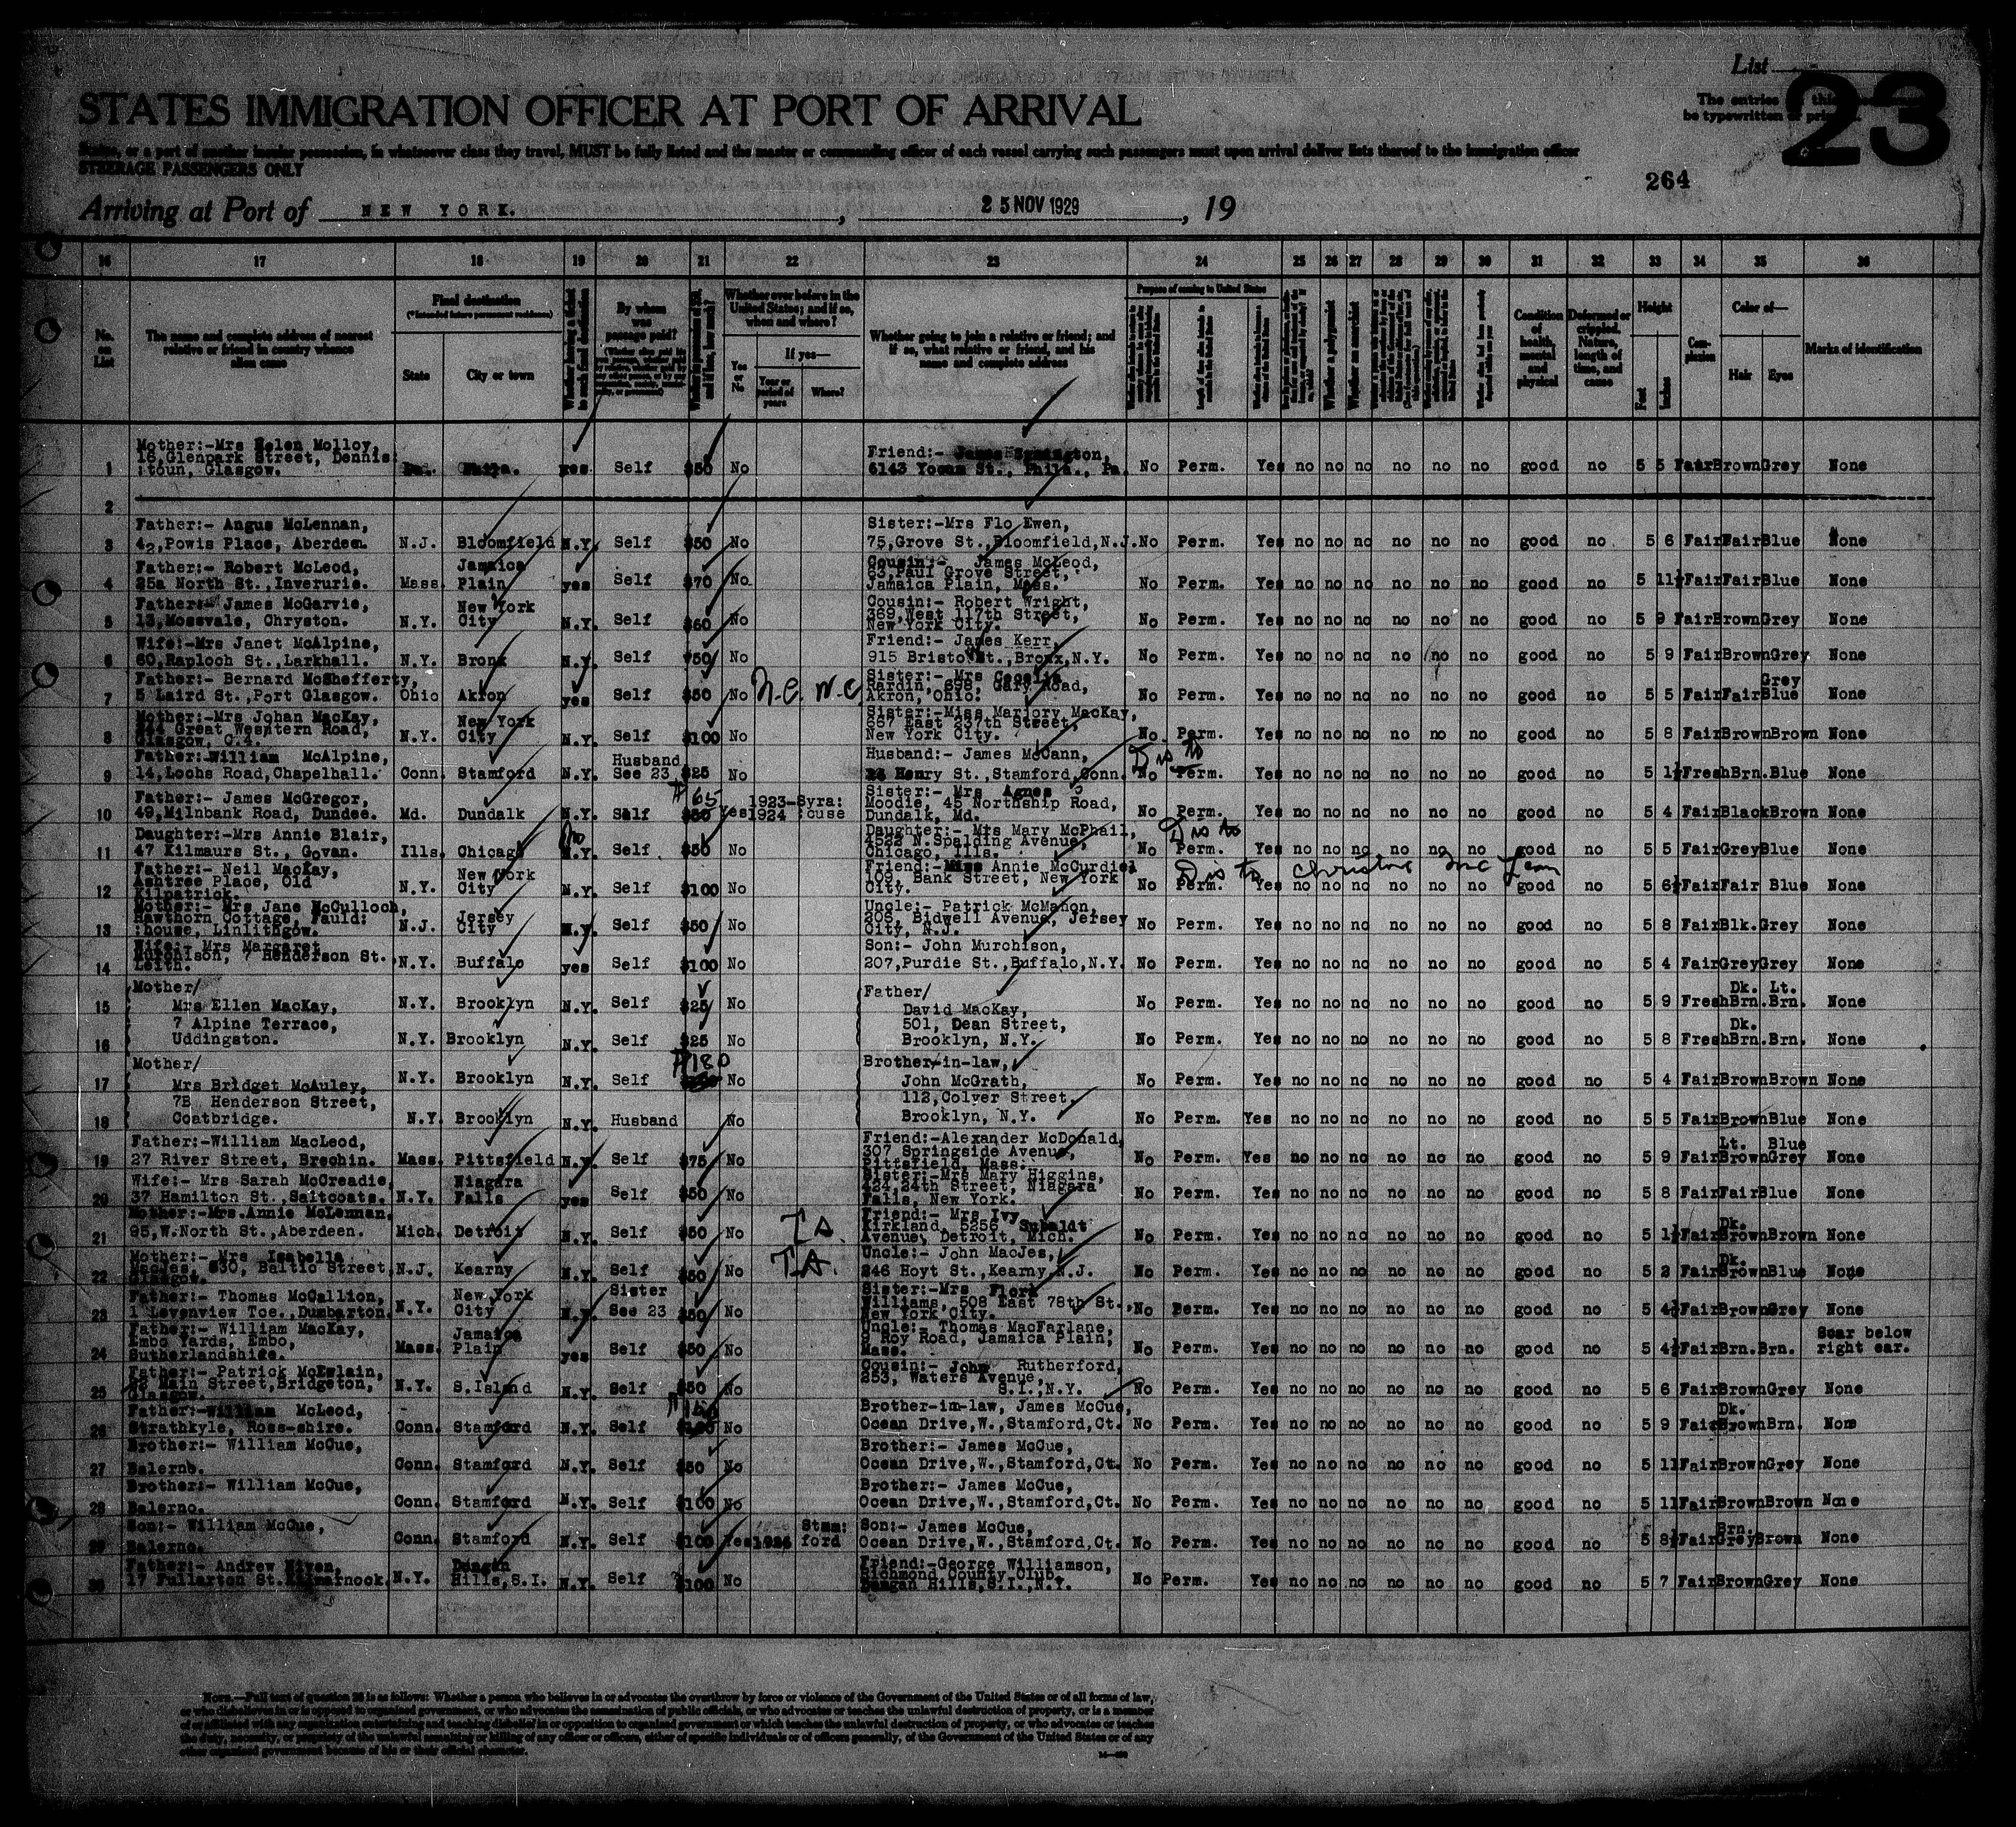 List
23
The entries
be typewritten or
STATES IMMIGRATION OFFICER AT PORT OF ARRIVAL
States, or a port of another insular possession, in whatsoever class they travel, MUST be fully listed and the master or commanding officer of each vessel carrying such passengers must upon arrival deliver lists thereof to the immigration officer
STEERAGE PASSENGERS ONLY
264
Arriving at Port of NEW YORK. , 25 NOV 1929 , 19
16 17 18 19 20 21 22 23 24 25 26 27 28 29 30 31 32 33 34 35 36
No. on List
The name and complete address of nearest relative or friend in country whence alien came
Final destination
(*Intended future permanent residence)
State City or town
By whom was passage paid?
Whether ever before in the United States; and if so, when and where?
Yes or No
If yes—
Year or period of years Where?
Whether going to join a relative or friend; and if so, what relative or friend, and his name and complete address
Purpose of coming to United States
Condition of health, mental and physical
Deformed or crippled. Nature, length of time, and cause
Height
Feet Inches
Complexion
Color of—
Hair Eyes
Marks of identification
Mother:-Mrs Helen Molloy, Friend:- James
18,Glenpark Street, Dennis:
1 :toun, Glasgow. Pa. Phila. yes Self $50 No 6143 Yocum St., Phila., Pa. No Perm. Yes no no no no no no good no 5 5 Fair Brown Grey None
2
Father:- Angus McLennan, Sister:-Mrs Flo Ewen,
3 42,Powis Place, Aberdeen. N.J. Bloomfield N.Y. Self $50 No 75,Grove St.,Bloomfield,N.J. No Perm. Yes no no no no no no good no 5 6 Fair Fair Blue None
Father:- Robert McLeod, Jamaica Cousin:- James McLeod,
63,Paul Grove Street,
4 25a North St.,Inverurie. Mass. Plain yes Self $70 No Jamaica Plain, Mass. No Perm. Yes no no no no no no good no 5 11½ Fair Fair Blue None
Father:- James McGarvie, New York Cousin:- Robert Wright,
369,West 117th Street,
5 13,Mossvale, Chryston. N.Y. City N.Y. Self $60 No New York City. No Perm. Yes no no no no no no good no 5 9 Fair Brown Grey None
Wife:-Mrs Janet McAlpine, Friend:- James Kerr,
6 60,Raploch St.,Larkhall. N.Y. Bronx N.Y. Self $50 No 915 Bristow St.,Bronx,N.Y. No Perm. Yes no no no no no no good no 5 9 Fair Brown Grey None
Father:- Bernard McShefferty, Sister:- Mrs Cecelia Grey
7 5 Laird St.,Port Glasgow. Ohio Akron yes Self $50 No Rardin, 698, Gary Road, Akron, Ohio. No Perm. Yes no no no no no no good no 5 5 Fair Fair Blue None
Mother:-Mrs Johan MacKay, New York Sister:-Miss Marjory MacKay,
Great Western Road, 657 East 237th Street,
8 Glasgow, C.4. N.Y. City N.Y. Self $100 No New York City. No Perm. Yes no no no no no no good no 5 8 Fair Brown Brown None
Father:-William McAlpine, Husband Husband:- James McCann, Dis to
9 14,Lochs Road,Chapelhall. Conn. Stamford N.Y. See 23 $25 No Henry St.,Stamford,Conn. No Perm. Yes no no no no no no good no 5 1½ Fresh Brn. Blue None
Father:- James McGregor, $65 1923- Syra: Sister:- Mrs Agnes
Moodie, 45 Northship Road,
10 49,Milnbank Road, Dundee. Md. Dundalk N.Y. Self $50 Yes 1924 :cuse Dundalk, Md. No Perm. Yes no no no no no no good no 5 4 Fair Black Brown None
Daughter:-Mrs Annie Blair, no Daughter:- Mrs Mary McPhail, Dis to
4522 N.Spalding Avenue,
11 47 Kilmaurs St., Govan. Ills. Chicago N.Y. Self $50 No Chicago, Ills. No Perm. Yes no no no no no no good no 5 5 Fair Grey Blue None
Father:- Neil MacKay, New York Friend:-Miss Annie McCurdie, Dis to Christine McLean
Ashtree Place, Old 109, Bank Street, New York
12 Kilpatrick. N.Y. City N.Y. Self $100 No City. No Perm. Yes no no no no no no good no 5 6½ Fair Fair Blue None
Mother:- Mrs Jane McCulloch, Uncle:- Patrick McMahon,
Hawthorn Cottage, Fauld: Jersey 206, Bidwell Avenue, Jersey
13 :house, Linlithgow. N.J. City N.Y. Self $50 No City, N.J. No Perm. Yes no no no no no no good no 5 8 Fair Blk. Grey None
Wife:- Mrs Margaret Son:- John Murchison,
Murchison, 7 Henderson St.
14 Leith. N.Y. Buffalo yes Self $100 No 207,Purdie St.,Buffalo,N.Y. No Perm. Yes no no no no no no good no 5 4 Fair Grey Grey None
Mother/ Father/ Dk. Lt.
15 Mrs Ellen MacKay, N.Y. Brooklyn N.Y. Self $25 No David MacKay, No Perm. Yes no no no no no no good no 5 9 Fresh Brn. Brn. None
7 Alpine Terrace, 501, Dean Street, Dk.
16 Uddingston. N.Y. Brooklyn N.Y. Self $25 No Brooklyn, N.Y. No Perm. Yes no no no no no no good no 5 8 Fresh Brn. Brn. None
Mother/ $180 Brother-in-law,
17 Mrs Bridget McAuley, N.Y. Brooklyn N.Y. Self No John McGrath, No Perm. Yes no no no no no no good no 5 4 Fair Brown Brown None
7B Henderson Street, 112,Colyer Street.
18 Coatbridge. N.Y. Brooklyn N.Y. Husband No Brooklyn, N.Y. No Perm. Yes no no no no no no good no 5 5 Fair Brown Blue None
Father:-William MacLeod, Friend:-Alexander McDonald, Lt. Blue
307 Springside Avenue,
19 27 River Street, Brechin. Mass. Pittsfield N.Y. Self $75 No Pittsfield, Mass. No Perm. Yes no no no no no no good no 5 9 Fair Brown Grey None
Wife:- Mrs Sarah McCreadie, Niagara Sister:-Mrs Mary Higgins,
424,24th Street, Niagara
20 37 Hamilton St.,Saltcoats. N.Y. Falls yes Self $50 No Falls, New York. No Perm. Yes no no no no no no good no 5 8 Fair Fair Blue None
Mother:-Mrs.Annie McLennan, T.A. Friend:- Mrs Ivy Dk.
Kirkland, 5256,
21 95,W.North St.,Aberdeen. Mich. Detroit N.Y. Self $50 No Avenue, Detroit, Mich. No Perm. Yes no no no no no no good no 5 1½ Fair Brown Brown None
Mother:- Mrs Isabella T.A. Uncle:- John MacJes, Dk.
MacJes, 630, Baltic Street,
22 Glasgow. N.J. Kearny N.Y. Self $50 No 246 Hoyt St.,Kearny,N.J. No Perm. Yes no no no no no no good no 5 2 Fair Brown Blue None
Father:- Thomas McCallion, New York Sister Sister:-Mrs
Williams, 508 East 78th St.,
23 1 Levenview Tce.,Dumbarton. N.Y. City N.Y. See 23 $50 No New York City. No Perm. Yes no no no no no no good no 5 4½ Fair Brown Grey None
Father:- William MacKay, Jamaica Uncle:- Thomas MacFarlane, Scar below
Embo Yards, Embo, 9 Roy Road, Jamaica Plain,
24 Sutherlandshire. Mass. Plain yes Self $50 No Mass. No Perm. Yes no no no no no no good no 5 4½ Fair Brn. Brn. right ear.
Father:- Patrick McElwlain, Cousin:- John Rutherford,
Main Street,Bridgeton, 253, Waters Avenue,
25 Glasgow. N.Y. S.Island N.Y. Self $50 No S.I.,N.Y. No Perm. Yes no no no no no no good no 5 6 Fair Brown Grey None
Father:-William McLeod, Brother-in-law, James McCue, Dk.
26 Strathkyle, Ross-shire. Conn. Stamford N.Y. Self No Ocean Drive,W.,Stamford,Ct. No Perm. Yes no no no no no no good no 5 9 Fair Brown Brn. None
Brother:- William McCue, Brother:- James McCue,
27 Balerno. Conn. Stamford N.Y. Self $50 No Ocean Drive,W.,Stamford,Ct. No Perm. Yes no no no no no no good no 5 11 Fair Brown Grey None
Brother:- William McCue, Brother:- James McCue,
28 Balerno. Conn. Stamford N.Y. Self $100 No Ocean Drive,W.,Stamford,Ct. No Perm. Yes no no no no no no good no 5 11 Fair Brown Brown None
Son:- William McCue, Stam: Son:- James McCue, Brn.
29 Balerno. Conn. Stamford N.Y. Self $100 Yes ford Ocean Drive,W.,Stamford,Ct. No Perm. Yes no no no no no no good no 5 8½ Fair Grey Brown None
Father:- Andrew Niven, Dongan Friend:-George Williamson,
Richmond County Club,
30 17 Fullarton St.Kilmarnock. N.Y. Hills,S.I. N.Y. Self $100 No Dongan Hills,S.I.,N.Y. No Perm. Yes no no no no no no good no 5 7 Fair Brown Grey None
NOTE.—Full text of question 28 is as follows: Whether a person who believes in or advocates the overthrow by force or violence of the Government of the United States or of all forms of law,
or who disbelieves in or is opposed to organized government, or who advocates the assassination of public officials, or who advocates or teaches the unlawful destruction of property, or is a member
of or affiliated with any organization entertaining and teaching disbelief in or opposition to organized government or which teaches the unlawful destruction of property, or who advocates or teaches
the duty, necessity, or propriety of the unlawful assaulting or killing of any officer or officers, either of specific individuals or of officers generally, of the Government of the United States or of any
other organized government because of his or their official character.